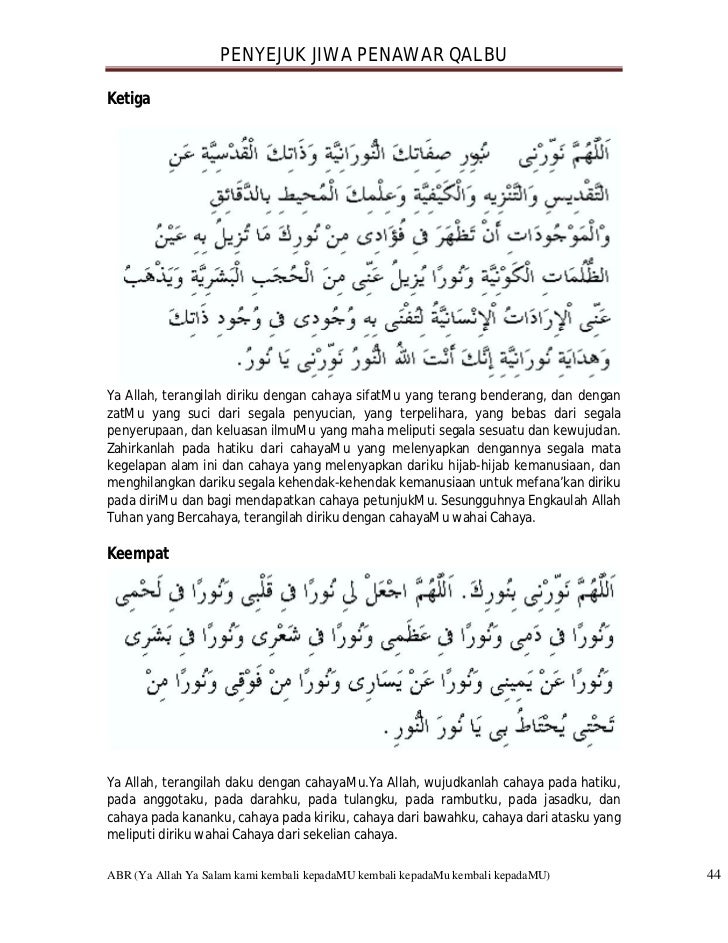 PENYEJUK JIWA PENAWAR QALBU
Ketiga
اَللّٰهُمَّ نَوِّرْنِى بِنُورِ صِفَاتِكَ النُّورَانِيَّةِ وَذَاتِكَ الْقُدْسِيَّةِ عَنِ
التَّقْدِيسِ وَالتَّنْزِيهِ وَالْكَيْفِيَّةِ وَعِلْمِكَ الْمُحِيطِ بِالدَّقَائِقِ
وَالْمَوْجُودَاتِ أَنْ تَظْهَرَ فِى فُؤَادِى مِنْ نُورِكَ مَا تُزِيلُ بِهِ عَيْنُ
الظُّلُمَاتِ الْكَوْنِيَّةِ وَنُورًا يُزِيلُ عَنِّى مِنَ الْحُجَبِ الْبَشَرِيَّةِ وَيَذْهَبُ
عَنِّى اْلإِرَادَاتُ اْلإِنْسَانِيَّةُ لِتُفْنَى بِهِ وُجُودِى فِى وُجُودِ ذَاتِكَ
وَهِدَايَةِ نُورَانِيَّةِ إِنَّكَ أَنْتَ اللهُ النُّورُ نَوِّرْنِى يَا نُورُ.
Ya Allah, terangilah diriku dengan cahaya sifatMu yang terang benderang, dan dengan
zatMu yang suci dari segala penyucian, yang terpelihara, yang bebas dari segala
penyerupaan, dan keluasan ilmuMu yang maha meliputi segala sesuatu dan kewujudan.
Zahirkanlah pada hatiku dari cahayaMu yang melenyapkan dengannya segala mata
kegelapan alam ini dan cahaya yang melenyapkan dariku hijab-hijab kemanusiaan, dan
menghilangkan dariku segala kehendak-kehendak kemanusiaan untuk mefana’kan diriku
pada diriMu dan bagi mendapatkan cahaya petunjukMu. Sesungguhnya Engkaulah Allah
Tuhan yang Bercahaya, terangilah diriku dengan cahayaMu wahai Cahaya.
Keempat
اَللّٰهُمَّ نَوِّرْنِى بِنُورِكَ. اَللّٰهُمَّ اجْعَلْ لِى نُورًا فِى قَلْبِى وَنُورًا فِى لَحْمِى
وَنُورًا فِى دَمِى وَنُورًا فِى عَظَمِى وَنُورًا فِى شَعْرِى وَنُورًا فِى بَشَرِى
وَنُورًا عَنْ يَمِينِى وَنُورًا عَنْ يَسَارِى وَنُورًا مِنْ فَوْقِى وَنُورًا مِنْ
تَحْتِى يُحْتَاطُ بِى يَا نُورَ النُّورِ.
Ya Allah, terangilah daku dengan cahayaMu.Ya Allah, wujudkanlah cahaya pada hatiku,
pada anggotaku, pada darahku, pada tulangku, pada rambutku, pada jasadku, dan
cahaya pada kananku, cahaya pada kiriku, cahaya dari bawahku, cahaya dari atasku yang
meliputi diriku wahai Cahaya dari sekelian cahaya.
ABR (Ya Allah Ya Salam kami kembali kepadaMU kembali kepadaMu kembali kepadaMU) 44